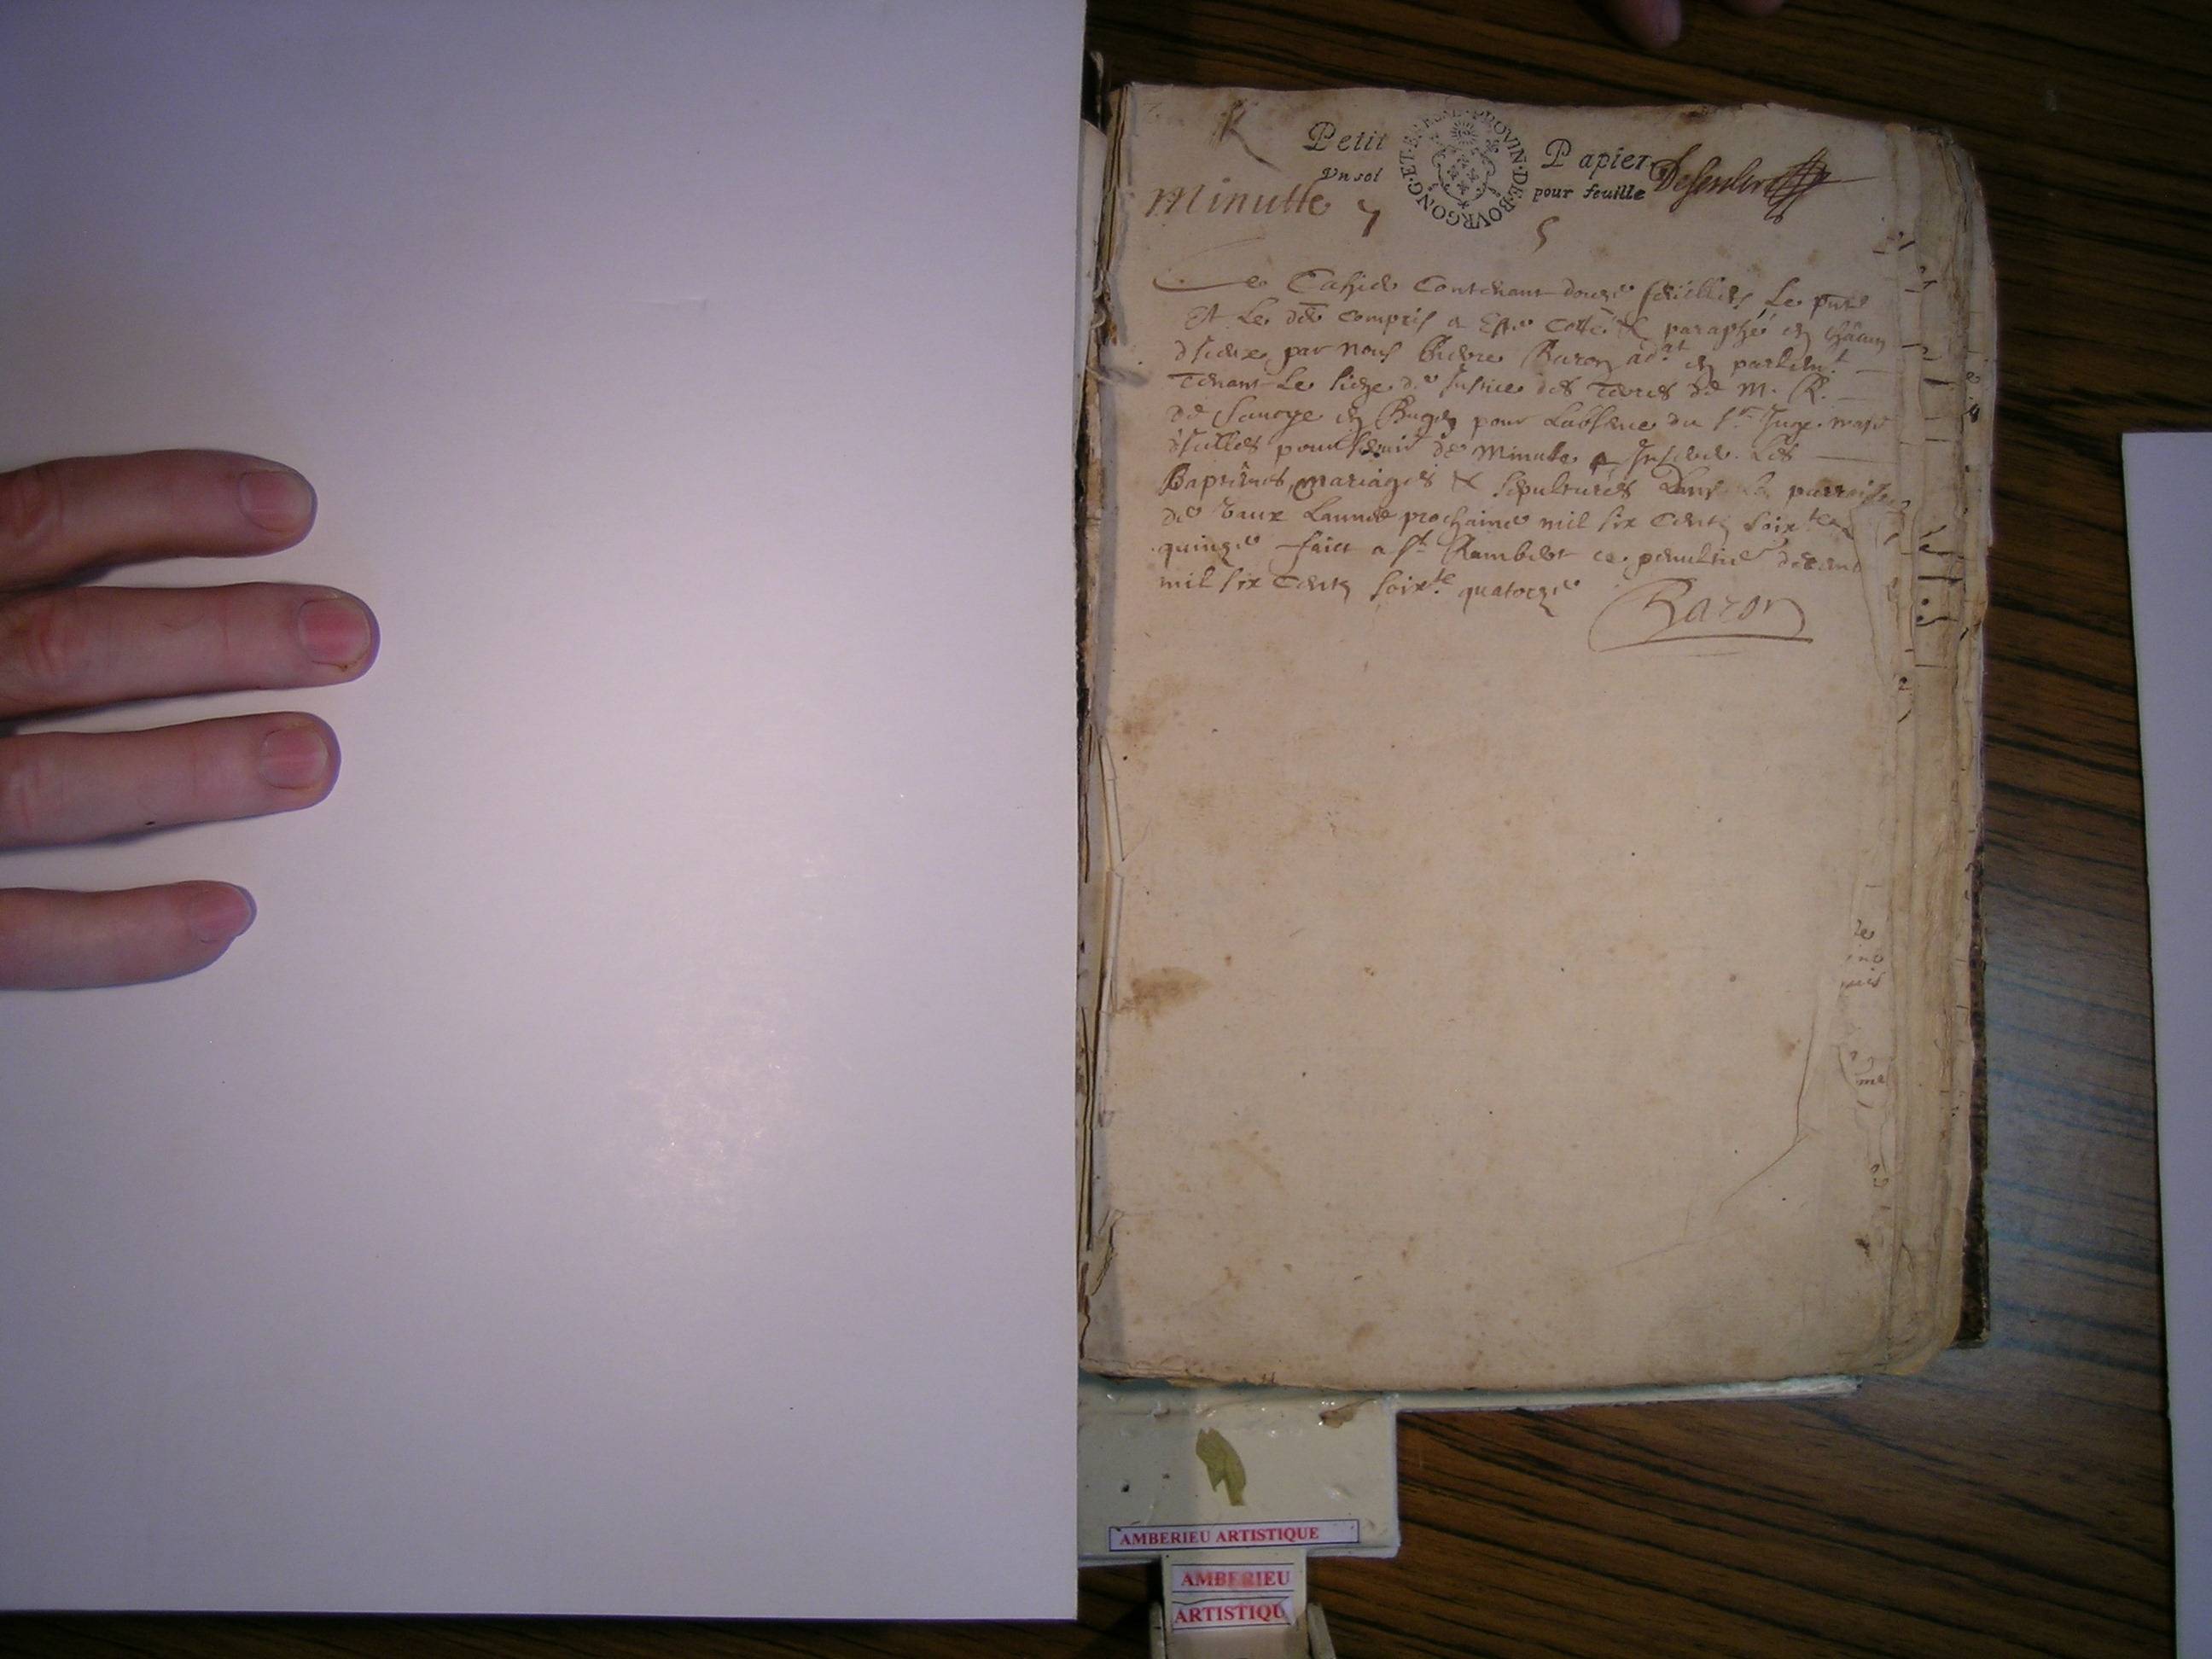 Petit Papier
Vn sol pour feuille
GENE PROVIN·DE·BOVRGONG·ET
Minutte
Ce Cahier Contenant douze feuillets, Le pnt
Et Le der compris a Este Cotté & paraphé en chacun
d'iceux, par nous Baron adat en parlemt
Tenant Le siege de Justice des Terres de M. R.
de Sauoye en Bugey pour Labsence du sr Juge maje
d'icelles pour seruir de Minute a Inserer Les
Baptêmes, mariages & sepultures Dans La parroisse
de Vaux Lannée prochaine mil six Cents soixte
quinze faict a St Rambert ce penultie decemb
mil six Cents soixte quatorze
Baron
AMBERIEU ARTISTIQUE
AMBERIEU
ARTISTIQU